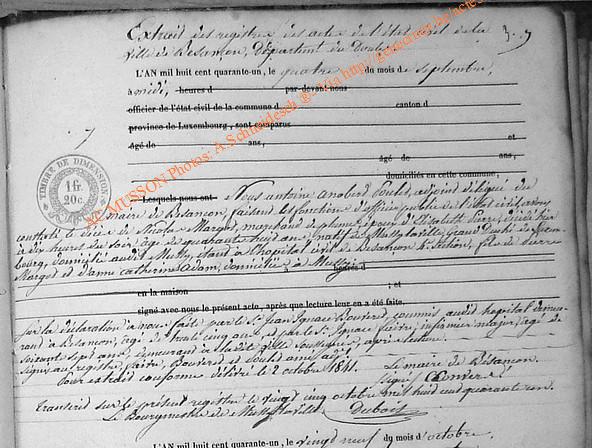 Extrait des registres des actes de l'état civil de la
ville de Besançon, Département du Doubs
L'AN mil huit cent quarante-un, le quatre du mois de septembre,
à midi, heures d par-devant nous
officier de l'état civil de la commune d canton d
province de Luxembourg, sont comparus
âgé de ans, et
âgé de ans,
domiciliés en cette commune,
Lesquels nous ont Nous antoine Doulet, adjoint délégué du
maire de Besançon, faisant les fonctions d'officier public de l'état civil avons
constaté le décès de Nicolas Margot, marchand de plumes, époux d'Elisabeth Pierre, décédé hier
à dix heures du soir, âgé de quarante huit ans, natif de Mussy la ville, Grand Duché de Luxem-
bourg, domicilié audit Mussy, étant à l'hôpital civil de Besançon, fils de Pierre
Margot et d'anne catherine adam, domiciliés à Mussy
heures d
en la maison ; et
signé avec nous le présent acte, après que lecture leur en a été faite.
Sur la déclaration à nous faite par le Sr. Jean Ignace Bouverd, commis audit hôpital demeu-
rant à Besançon, âgé de trente cinq ans, et par le Sr. Ignace faivre, infirmier major, âgé de
soixante sept ans, demeurant à ladite ville soussignés, après lecture.
Signé au registre, faivre, Bouverd et Doulet
Pour extrait conforme délivré le 2 octobre 1841.
Le maire de Besançon.
Signé
Transcrit sur le présent registre le vingt cinq octobre mil huit cent quarante un.
Le Bourgmestre de Mussy la ville Dubois
L'AN mil huit cent quarante-un, le vingt neuf du mois d'octobre,
TIMBRE DE DIMENSION
1 fr
20 c.
AC MUSSON Photos: A.Schneidesch @ Via http://